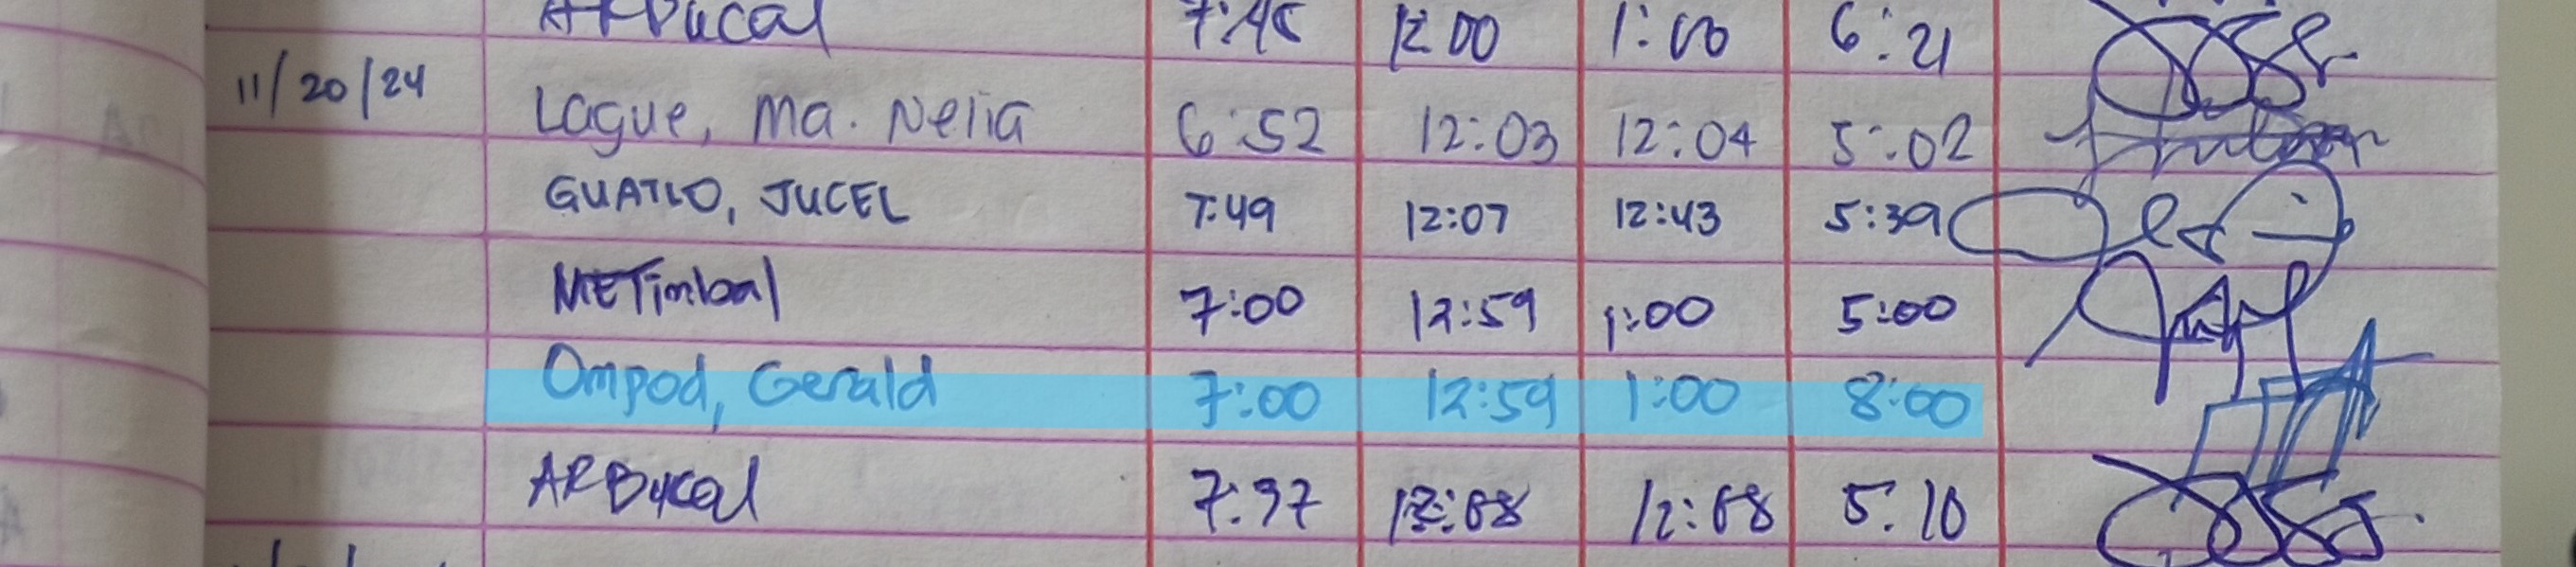 ARBucal 7:45 12:00 1:00 6:21
11/20/24 Lague, Ma. Nelia 6:52 12:03 12:04 5:02
GUATLO, JUCEL 7:49 12:07 12:43 5:39
METimbal 7:00 12:59 1:00 5:00
Ompod, Gerald 7:00 12:59 1:00 8:00
ARBucal 7:37 12:08 12:08 5:10